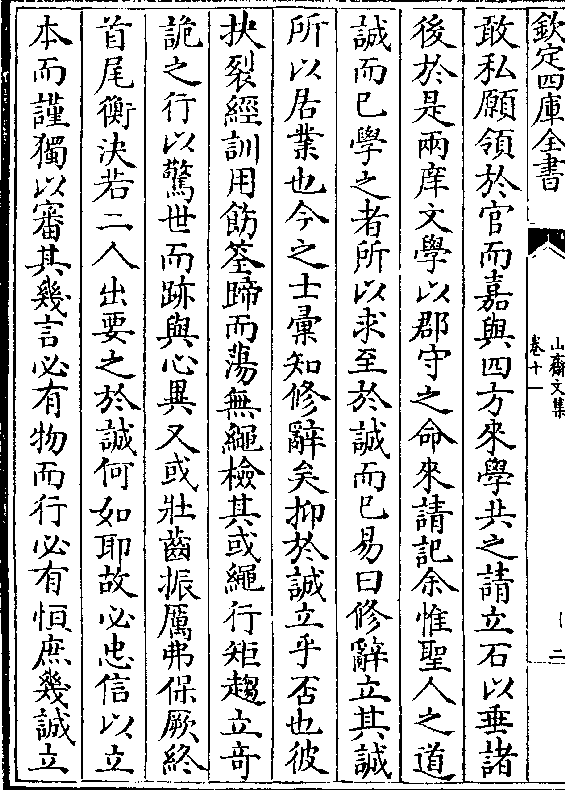 欽定四庫全書
山齋文集
卷十一
二
敢私願領於官而嘉與四方來學共之請立石以垂諸
後於是兩庠文學以郡守之命來請記余惟聖人之道
誠而已學之者所以求至於誠而已易曰修辭立其誠
所以居業也今之士彙知修辭矣抑於誠立乎否也彼
抉裂經訓用飭筌蹄而蕩無繩檢其或繩行矩趨立奇
詭之行以驚世而跡與心異又或壯齒振厲弗保厥終
首尾衡決若二人出要之於誠何如耶故必忠信以立
本而謹獨以審其幾言必有物而行必有恒庶幾誠立